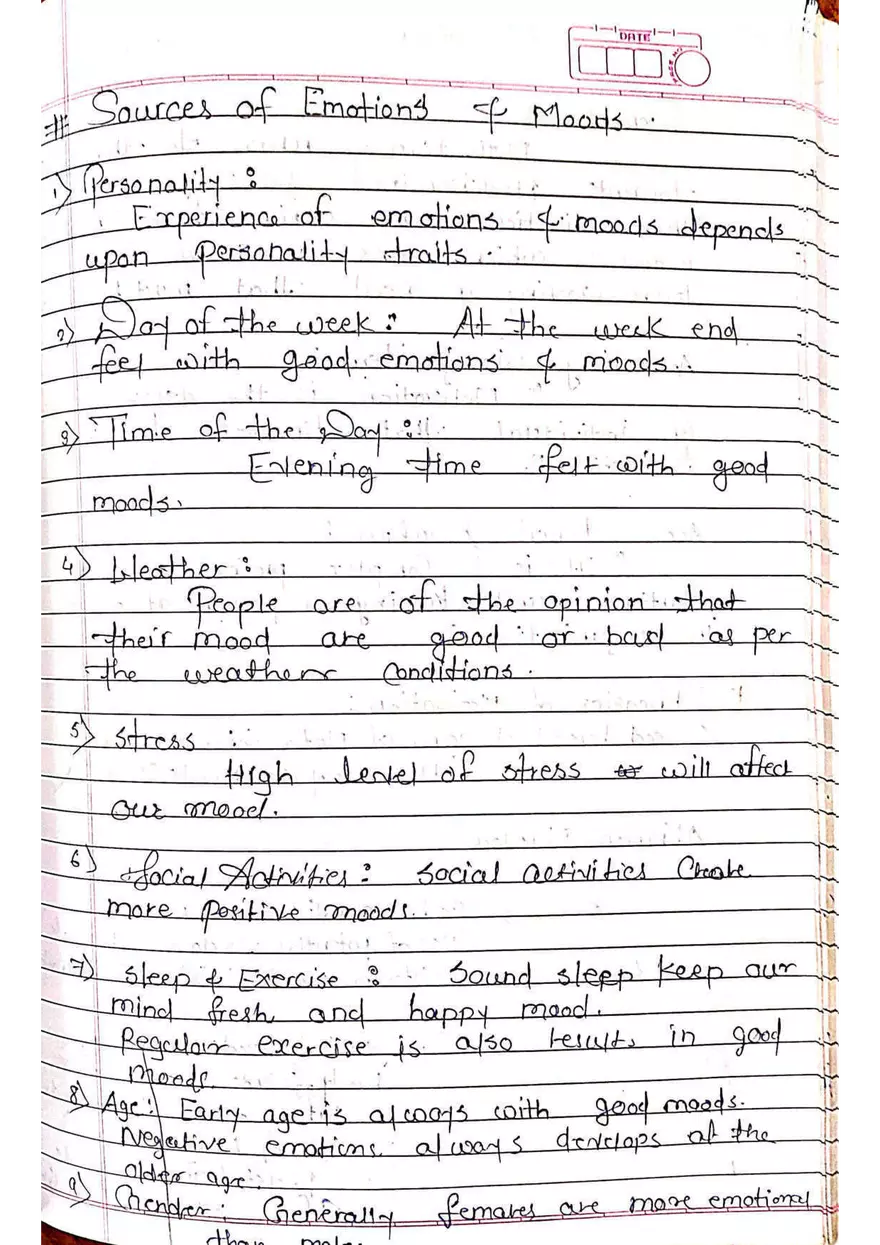 DATE
# Sources of Emotions & Moods.
1) Personality :
Experience of emotions & moods depends
upon Personality traits.
2) Day of the week : At the week end
feel with good emotions & moods.
3) Time of the Day :
Evening time felt with good
moods.
4) Weather :
People are of the opinion that
their mood are good or bad as per
the weather Conditions.
5) Stress :
High level of stress will affect
our mood.
6) Social Activities : Social activities Create
more Positive moods.
7) Sleep & Exercise : Sound sleep keep our
mind fresh and happy mood.
Regular exercise is also results in good
moods.
8) Age : Early age is always with good moods.
Negative emotions always develops at the
older age.
9) Gender : Generally females are more emotional
than males